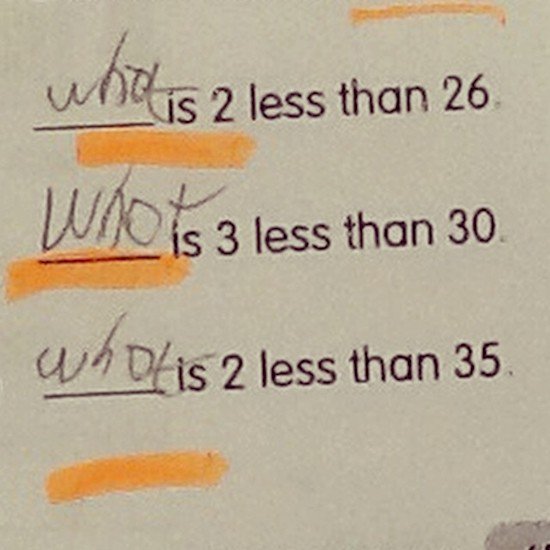 what is 2 less than 26.
What is 3 less than 30.
what is 2 less than 35.